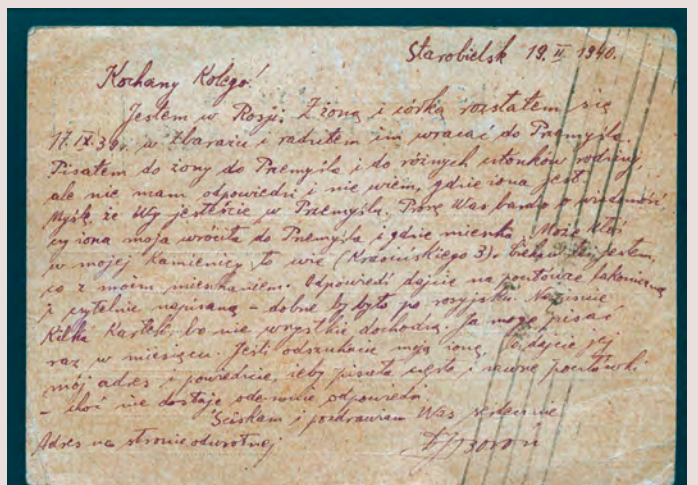 Starobielsk 19.II 1940.
Kochany Kolego!
Jestem w Rosji. Z żoną i córką rozstałem się
17.IX.39. w Zbarażu i radziłem im wracać do Przemyśla.
Pisałem do żony do Przemyśla i do różnych członków rodziny,
ale nie mam odpowiedzi i nie wiem, gdzie żona jest.
Myślę, że Wy jesteście w Przemyślu. Proszę Was bardzo o wiadomość,
czy żona moja wróciła do Przemyśla i gdzie mieszka. Może ktoś
w mojej kamienicy to wie (Krasińskiego 3). Ciekaw też jestem,
co z moim mieszkaniem. Odpowiedź dajcie na pocztówce lakoniczną
i czytelnie napisaną - dobrze by było po rosyjsku. Napiszcie
kilka kartek, bo nie wszystkie dochodzą. Ja mogę pisać
raz w miesiącu. Jeśli odszukacie moją żonę, to dajcie jej
mój adres i powiedzcie, żeby pisała często i zawsze pocztówki
- choć nie dostaje odemnie odpowiedzi.
Ściskam i pozdrawiam Was serdecznie
Adres na stronie odwrotnej